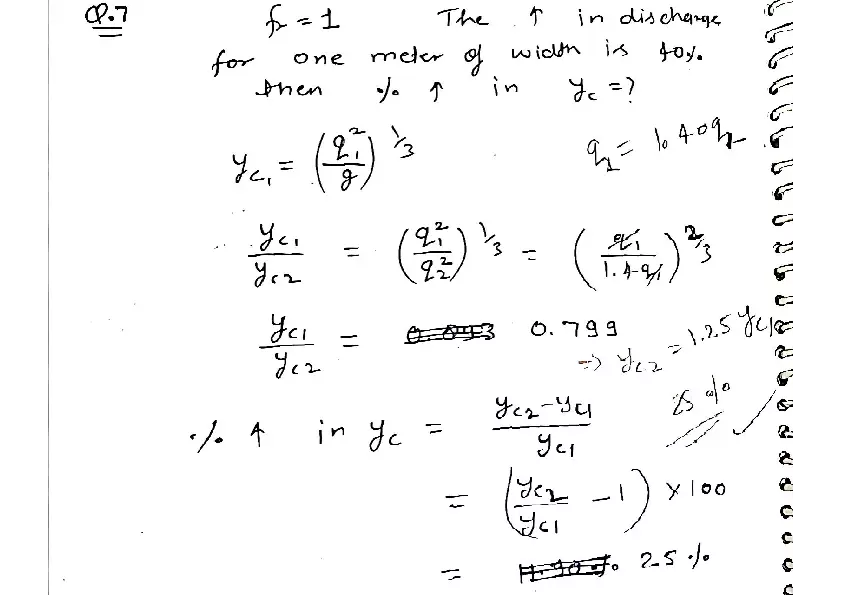 Q.7 fr = 1 The ↑ in discharge
for one meter of width is 40%.
then % ↑ in yc = ?
yc1 = (q1²/g)^1/3 q2 = 1.40q1
yc1/yc2 = (q1²/q2²)^1/3 = (q1/1.4q1)^2/3
yc1/yc2 = 0.799
⇒ yc2 = 1.25 yc1
% ↑ in yc = (yc2 - yc1)/yc1 25%
= (yc2/yc1 - 1) × 100
= 25%